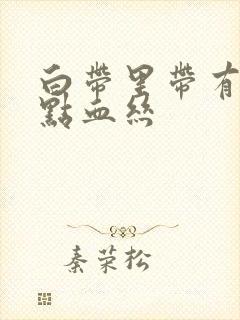 白帶里帶有
點血絲
秦荣松